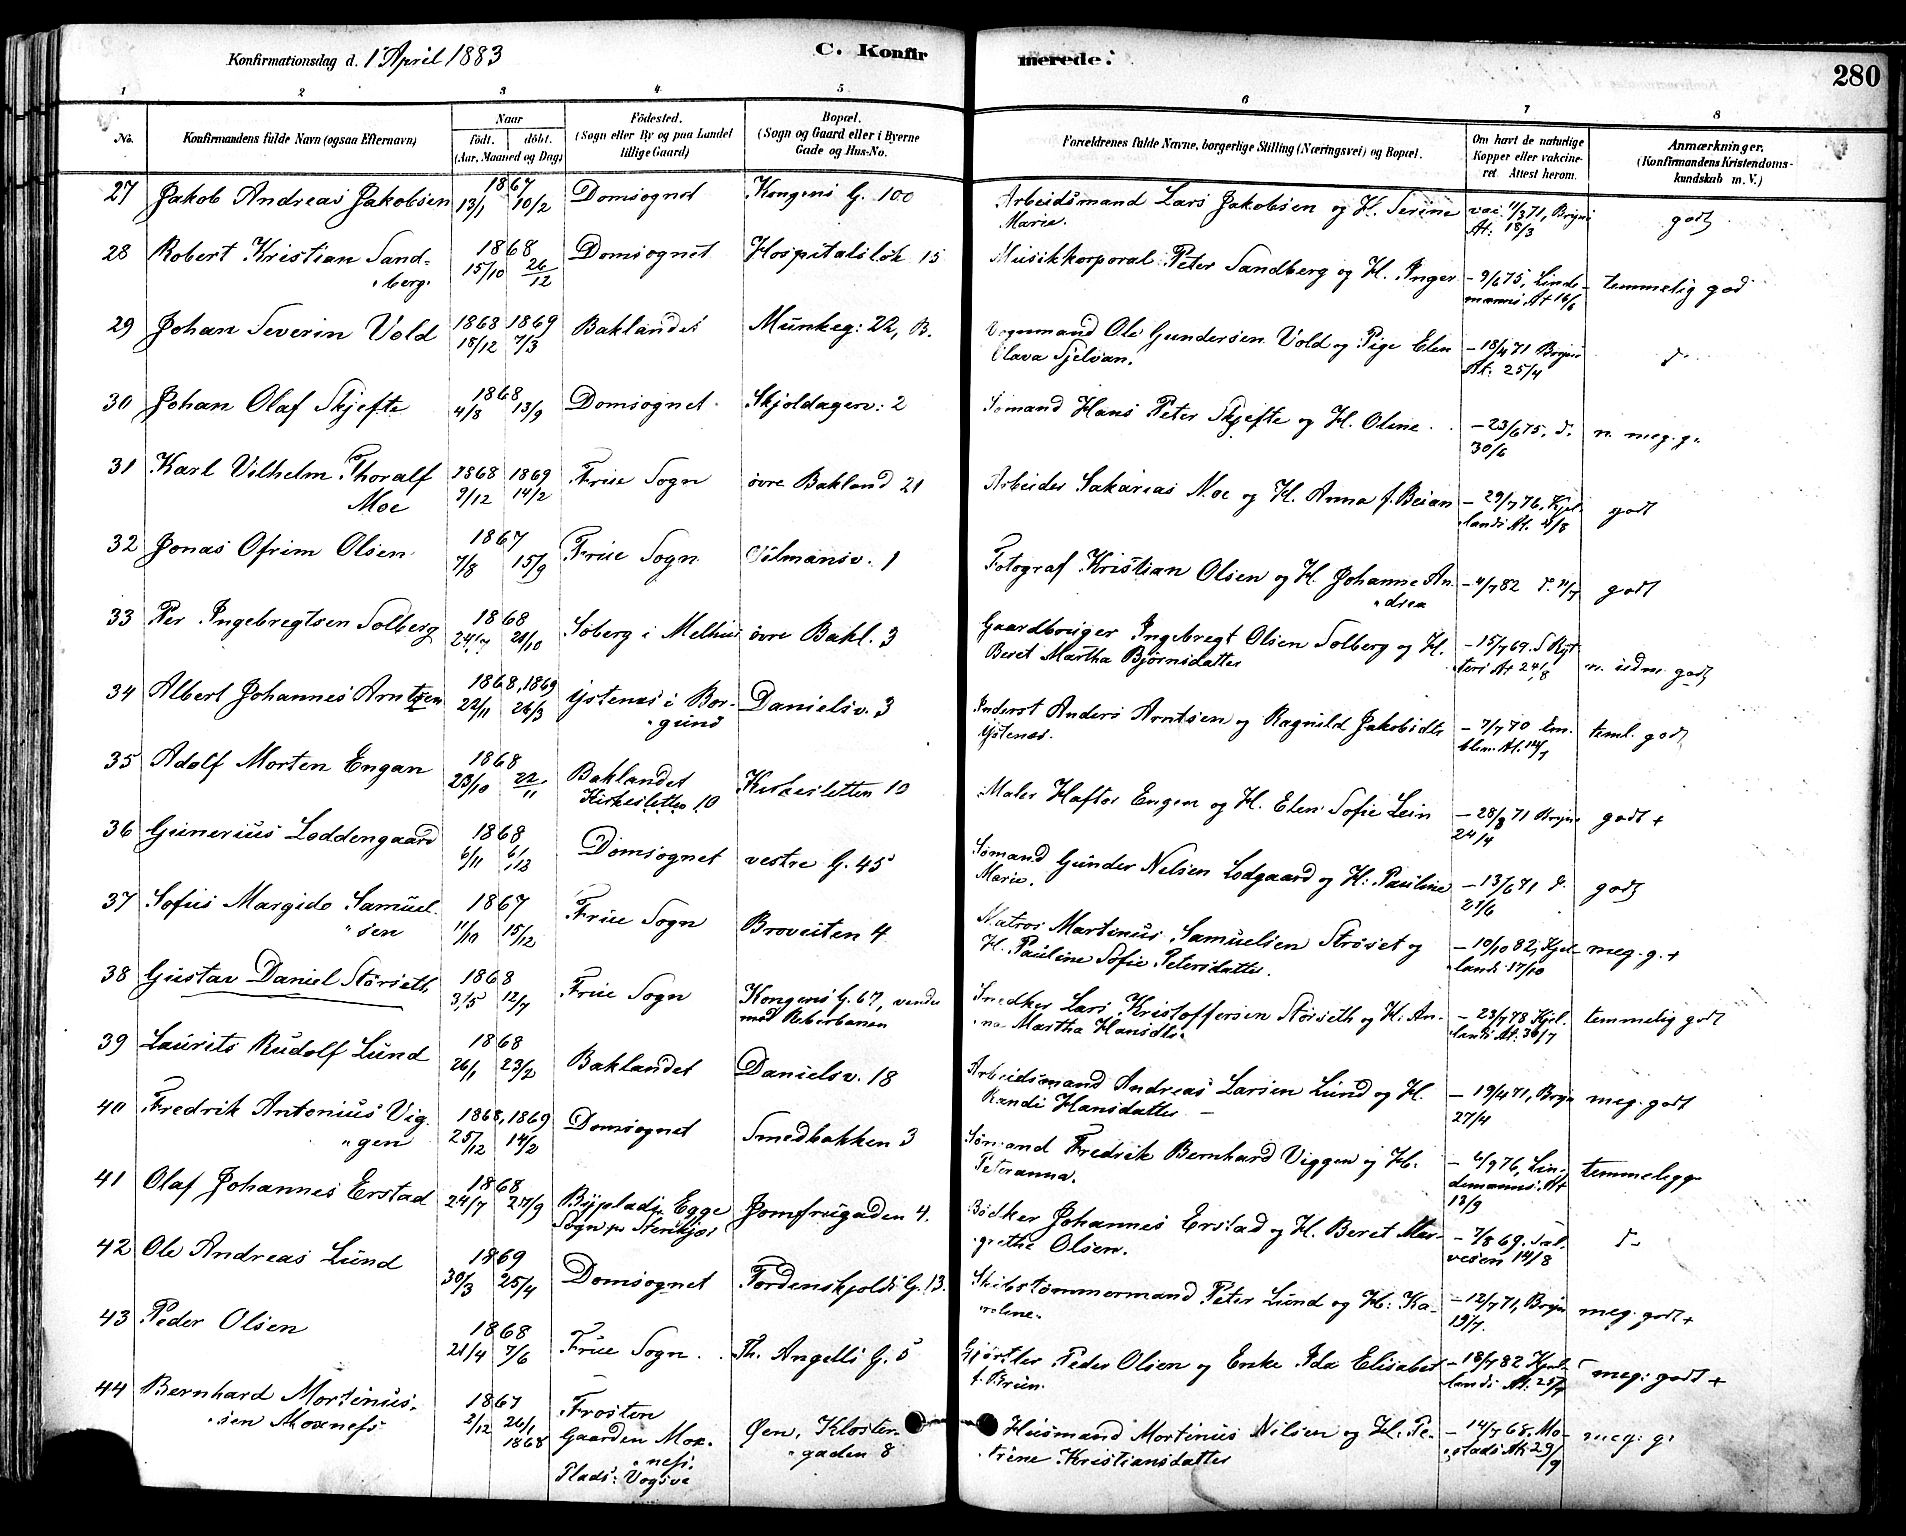 Konfirmationsdag d. 1 April 1883
C. Konfirmerede.
280
1 2 3 4 5 6 7 8
No.
Konfirmandens fulde Navn (ogsaa Efternavn)
Naar født. døbt. (Aar, Maaned og Dag)
Fødested. (Sogn eller By og paa Landet tillige Gaard)
Bopæl. (Sogn og Gaard eller i Byerne Gade og Hus-No.
Forældrenes fulde Navne, borgerlige Stilling (Næringsvei) og Bopæl.
Om havt de naturlige Kopper eller vakcineret. Attest herom.
Anmærkninger. (Konfirmandens Kristendomskundskab m. V.)
27 Jakob Andreas Jakobsen 1867 13/1 10/2 Domsognet Kongens G. 100 Arbeidsmand Lars Jakobsen og H. Serine Marie. vac. 11/3 71, Bryns At. 18/3 godt
28 Robert Kristian Sandberg 1868 15/10 26/12 Domsognet Hospitalsløk 15 Musikkorporal Peter Sandberg og H. Inger - 9/6 75, Lindemanns At 16/6 temmelig god
29 Johan Severin Vold 1868 18/12 1869 7/3 Baklandet Munkeg: 22, B. Vognmand Ole Gundersen Vold og Pige Elen Olava Sjelvan. - 18/4 71 Bryns At. 25/4 d-
30 Johan Olaf Skjefte 1868 4/8 13/9 Domsognet Skjoldagerv: 2 Sømand Hans Peter Skjefte og H. Oline - 23/6 75. d. 30/6 n. meg. g.
31 Karl Vilhelm Thoralf Moe 1868 9/12 1869 14/2 Frue Sogn øvre Bakland 21 Arbeider Sakarias Moe og H. Anna f. Beian - 29/7 76, Kjellands At. godt
32 Jonas Ofrim Olsen 1867 7/8 15/9 Frue Sogn Vilmansv. 1 Fotograf Kristian Olsen og H. Johanne Andrea - 4/7 82 d. 11/7 godt
33 Per Ingebregtsen Solberg 1868 24/7 21/10 Søberg i Melhus øvre Bakl. 3 Gaardbruger Ingebregt Olsen Solberg og H. Beret Martha Bjørnsdatter - 15/7 69. At 24/8 n. udm. godt
34 Albert Johannes Arntsen 1868, 1869 22/11 26/3 Ystenæs i Borgund Danielsv. 3 Anders Arntsen og Ragnild Jakobsdtr Ystenæs. - 7/7 70 Emblem At. 14/7 teml. godt
35 Adolf Morten Engan 1868 23/10 22/11 Baklandet Kirkesletten 10 Kirkesletten 10 Maler Haftor Engen og H. Elen Sofie Lein - 28/3 71 Bryns 24/4 godt +
36 Gunerius Loddengaard 1868 6/11 6/12 Domsognet vestre G. 45 Sømand Gunder Nelsen Lodgaard og H: Pauline Marie. - 13/6 71 d. 21/6 godt
37 Sofus Margido Samuelsen 1867 11/10 15/12 Frue Sogn Broveiten 4 Matros Martinus Samuelsen Strøset og H. Pauline Sofie Petersdatter. - 10/10 82, Kjellands 17/10 meg. g. +
38 Gustav Daniel Størseth 1868 31/5 12/7 Frue Sogn Kongens G. 67, vendes mod Reberbanen Snedker Lars Kristoffersen Størseth og H: Anna Martha Hansdtr. - 23/7 78 Kjellands At: 30/7 temmelig godt
39 Laurits Rudolf Lund 1868 26/1 23/2 Baklandet Danielsv. 18 Arbeidsmand Andreas Larsen Lund og H. Randi Hansdatter - - 19/4 71, Bryn 27/4 meg. godt
40 Fredrik Antonius Viggen 1868, 1869 25/12 14/2 Domsognet Smedbakken 3 Sømand Fredrik Bernhard Viggen og H. Peteranna. - 6/9 76, Lindemanns At 13/9 temmelig g
41 Olaf Johannes Erstad 1868 24/7 27/9 Egge Sogn pr Stenkjær Jomfrugaden 4. Bødker Johannes Erstad og H. Beret Margrethe Olsen. - 7/8 69. Salvesen 14/8 d-
42 Ole Andreas Lund 1869 30/3 25/4 Domsognet Tordenskjolds G. 13. Skibstømmermand Peter Lund og H: Karoline. - 12/7 71, Bryn 19/7. meg. godt +
43 Peder Olsen 1868 21/4 7/6 Frue Sogn. Th. Angells G. 5 Gjørtler Peder Olsen og Enke Ida Elisabet f. Brun. - 18/7 82 Kjellands At. 25/7 meg: godt +
44 Bernhard Mortinussen Moxness 1867 2/12 26/1 1868 Frosten Gaarden Moxness: Plads: Vogsve Øen, Klostergaden 8 Husmand Mortinus Nilsen og H. Petrine Kristiansdatter - 14/7 68. Mostads At 29/9 meg: g.